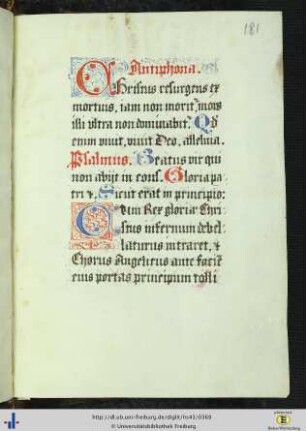 181
Antiphona.
Christus resurgens ex
mortuis, iam non morit, mors
illi vltra non dominabit. Qd
enim viuit, viuit Deo, alleluia.
Psalmus. Beatus vir qui
non abijt in cons. Gloria pa
tri &. Sicut erat in principio:
Cum Rex gloriæ Chri
stus infernum debel
laturus intraret, &
Chorus Angelicus ante faciē
eius portas principium tolli
http://dl.ub.uni-freiburg.de/diglit/hs43/0369
© Universitätsbibliothek Freiburg
Baden-Württemberg